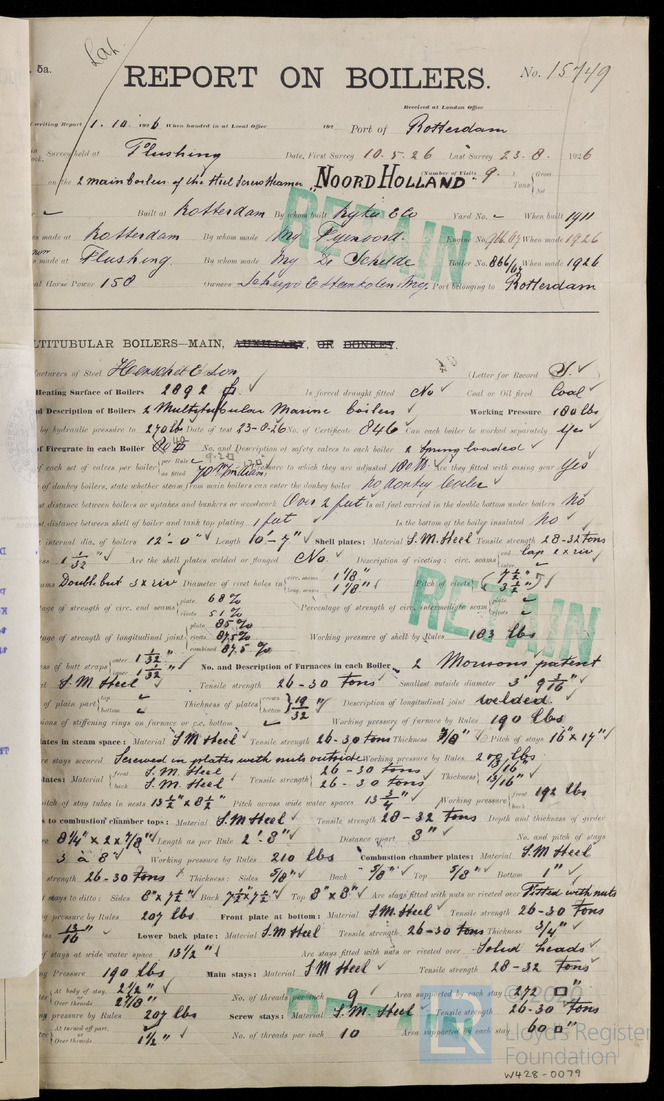 Lal.
5a.
REPORT ON BOILERS.
No. 15749
Received at London Office
writing Report 1. 10. 1926 When handed in at Local Office 192 Port of Rotterdam
Survey held at Flushing Date, First Survey 10.5.26 Last Survey 23.8. 1926
on the 2 main boilers of the Steel Screw Steamer "NOORD HOLLAND" (Number of Visits 9 ) Tons Gross Net
Built at Rotterdam By whom built Yard No. - When built 1911
made at Rotterdam By whom made Engine No. When made 1926
made at Flushing. By whom made My De Schelde Boiler No. 866/67 When made 1926
Horse Power 150 Owners Port belonging to Rotterdam
MULTITUBULAR BOILERS—MAIN, AUXILIARY, OR DONKEY.
facturers of Steel Henschel & Son (Letter for Record S. )
Heating Surface of Boilers 2892 Is forced draught fitted No Coal or Oil fired Coal
Description of Boilers 2 Multitubular Marine boilers Working Pressure 180 lbs
by hydraulic pressure to 270 lbs Date of test 23-8-26 No. of Certificate 846 Can each boiler be worked separately Yes
of Firegrate in each Boiler No. and Description of safety valves to each boiler 2 Spring loaded
of each set of valves per boiler per Rule as fitted Pressure to which they are adjusted Are they fitted with easing gear Yes
of donkey boilers, state whether steam from main boilers can enter the donkey boiler no donkey boiler
distance between boilers or uptakes and bunkers or woodwork Over 2 feet Is oil fuel carried in the double bottom under boilers No
distance between shell of boiler and tank top plating 1 feet Is the bottom of the boiler insulated No
internal dia. of boilers 12'-0" Length 10'-7" Shell plates: Material S.M. Steel Tensile strength 28-32 tons
1 1/32" Are the shell plates welded or flanged No. Description of riveting: circ. seams end lap 2 x riv
Double but 3 x riv Diameter of rivet holes in circ. seams 1 1/8" long. seams 1 1/8" Pitch of rivets
of strength of circ. end seams plate 68% rivets 51% Percentage of strength of circ. intermediate seam plate rivets
of strength of longitudinal joint plate 85% rivets 87.5% combined 87.5% Working pressure of shell by Rules 183 lbs
of butt straps outer 1 1/32" inner 1 1/32" No. and Description of Furnaces in each Boiler 2 Morisons patent
S.M Steel Tensile strength 26-30 Tons Smallest outside diameter 3' 9 9/16"
of plain part top bottom Thickness of plates crown bottom 19/32" Description of longitudinal joint welded
of stiffening rings on furnace or c.c. bottom Working pressure of furnace by Rules 190 lbs
plates in steam space: Material S M Steel Tensile strength 26-30 tons Thickness 7/8" Pitch of stays 16" x 17"
stays secured Screwed in plates with nuts outside Working pressure by Rules
plates: Material front S.M Steel back S.M Steel Tensile strength 26-30 tons 26-30 tons Thickness 13/16" 13/16"
pitch of stay tubes in nests 13 1/2" x 8 1/2" Pitch across wide water spaces 13 3/4" Working pressure front back 192 lbs
to combustion chamber tops: Material S.M Steel Tensile strength 28-32 tons Depth and thickness of girder
8 1/4" x 2 x 7/8" Length as per Rule 2'-8" Distance apart 8" No. and pitch of stays
3 à 8" Working pressure by Rules 210 lbs Combustion chamber plates: Material S.M Steel
strength 26-30 tons Thickness: Sides 5/8" Back 5/8" Top 5/8" Bottom 1"
stays to ditto: Sides 8" x 7 1/2" Back 7 1/2" x 7 1/2" Top 8" x 8" Are stays fitted with nuts or riveted over Fitted with nuts
pressure by Rules 207 lbs Front plate at bottom: Material S.M Steel Tensile strength 26-30 tons
13/16" Lower back plate: Material S.M Steel Tensile strength 26-30 tons Thickness 3/4"
stays at wide water space 13 1/2" Are stays fitted with nuts or riveted over Solid heads
Pressure 190 lbs Main stays: Material S M Steel Tensile strength 28-32 tons
At body of stay, Over threads 2 1/2" 2 7/8" No. of threads per inch 9 Area supported by each stay 272 □"
pressure by Rules 207 lbs Screw stays: Material S.M. Steel Tensile strength 26-30 tons
At turned off part, Over threads 1 1/2" No. of threads per inch 10 Area supported by each stay 60 □"
RETAIN
RETAIN
RETAIN
LR
Lloyd's Register
Foundation
W428-0079